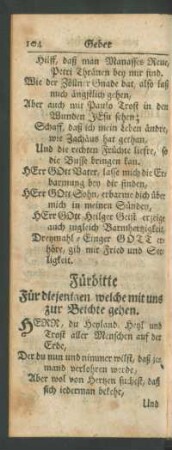 104 Gebet
Hilff, daß man Manasses Reue,
Petri Thränen bey mir find.
Wie der Zöllner Gnade bat, also laß
mich ängstlich gehen,
Aber auch mit Paulo Trost in den
Wunden JEsu sehen;
Schaff, daß ich mein Leben ändre,
wie Zachäus hat gethan,
Und die rechten Früchte liefre, so
die Busse bringen kan.
HErr GOtt Vater, lasse mich die Er-
barmung bey dir finden,
HErr GOtt Sohn, erbarme dich über
mich in meinen Sünden,
HErr GOtt Heilger Geist erzeige
auch zugleich Barmhertzigkeit,
Dreymahl-Einger GOTT er-
höre, gib mir Fried und Se-
ligkeit.
Fürbitte
Für diejenigen welche mit uns
zur Beichte gehen.
HERR, du Heyland, Heyl und
Trost aller Menschen auf der
Erde,
Der du nun und nimmer wilst, daß je-
mand verlohren werde,
Aber wol von Hertzen suchest, daß
sich jederman bekehr,
Und